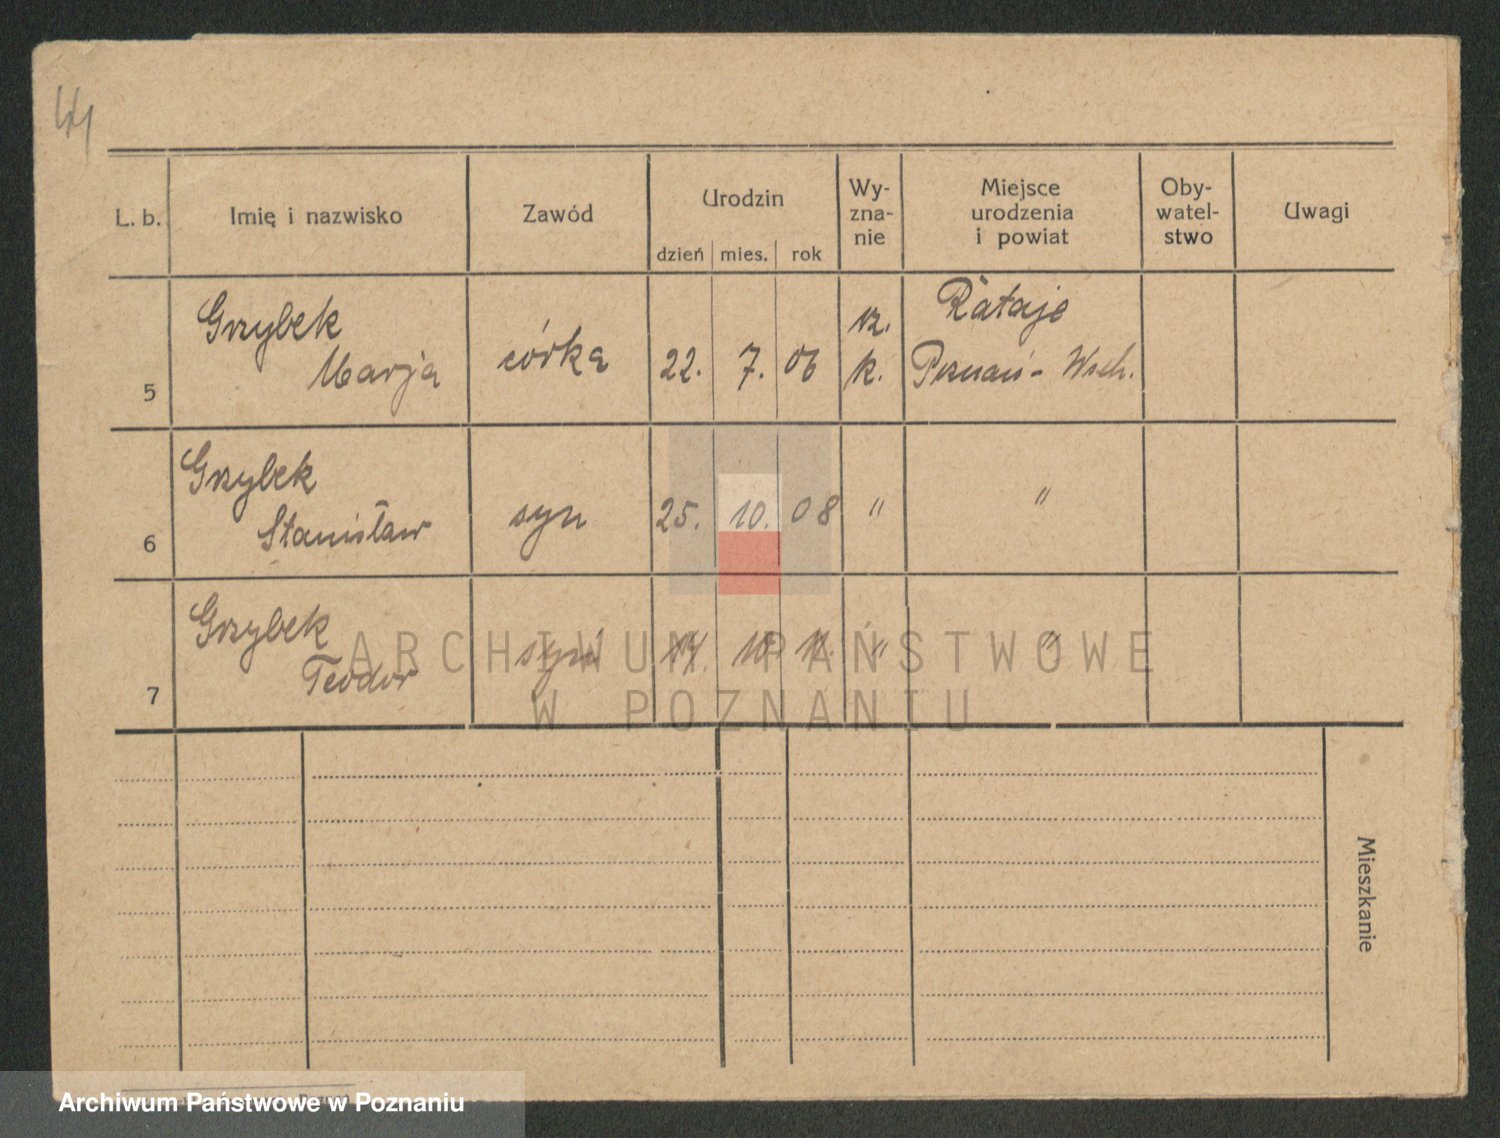 44
L. b.
Imię i nazwisko
Zawód
Urodzin
dzień mies. rok
Wy-
zna-
nie
Miejsce
urodzenia
i powiat
Oby-
watel-
stwo
Uwagi
5
Grzybek
Marja
córka
22. 7. 06
rz.
k.
Rataje
Poznań - Wsch.
6
Grzybek
Stanisław
syn
25. 10. 08
"
"
7
Grzybek
Teodor
syn
10. 11.
"
"
ARCHIWUM PAŃSTWOWE
W POZNANIU
Mieszkanie
Archiwum Państwowe w Poznaniu